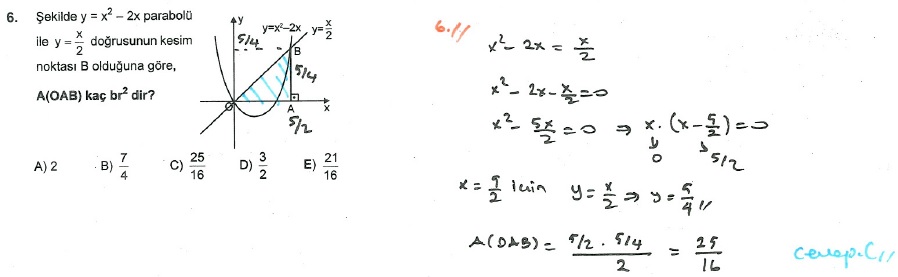 6. Şekilde y = x² – 2x parabolü
ile y = x/2 doğrusunun kesim
noktası B olduğuna göre,
A(OAB) kaç br² dir?
y
y=x²–2x
y=x/2
5/4
B
5/4
O
A
x
5/2
A) 2 B) 7/4 C) 25/16 D) 3/2 E) 21/16
6.//
x² - 2x = x/2
x² - 2x - x/2 = 0
x² - 5x/2 = 0 ⇒ x.(x - 5/2) = 0
0 5/2
x = 5/2 için y = x/2 ⇒ y = 5/4 //
A(OAB) = 5/2 . 5/4 / 2 = 25/16
cevap.C//